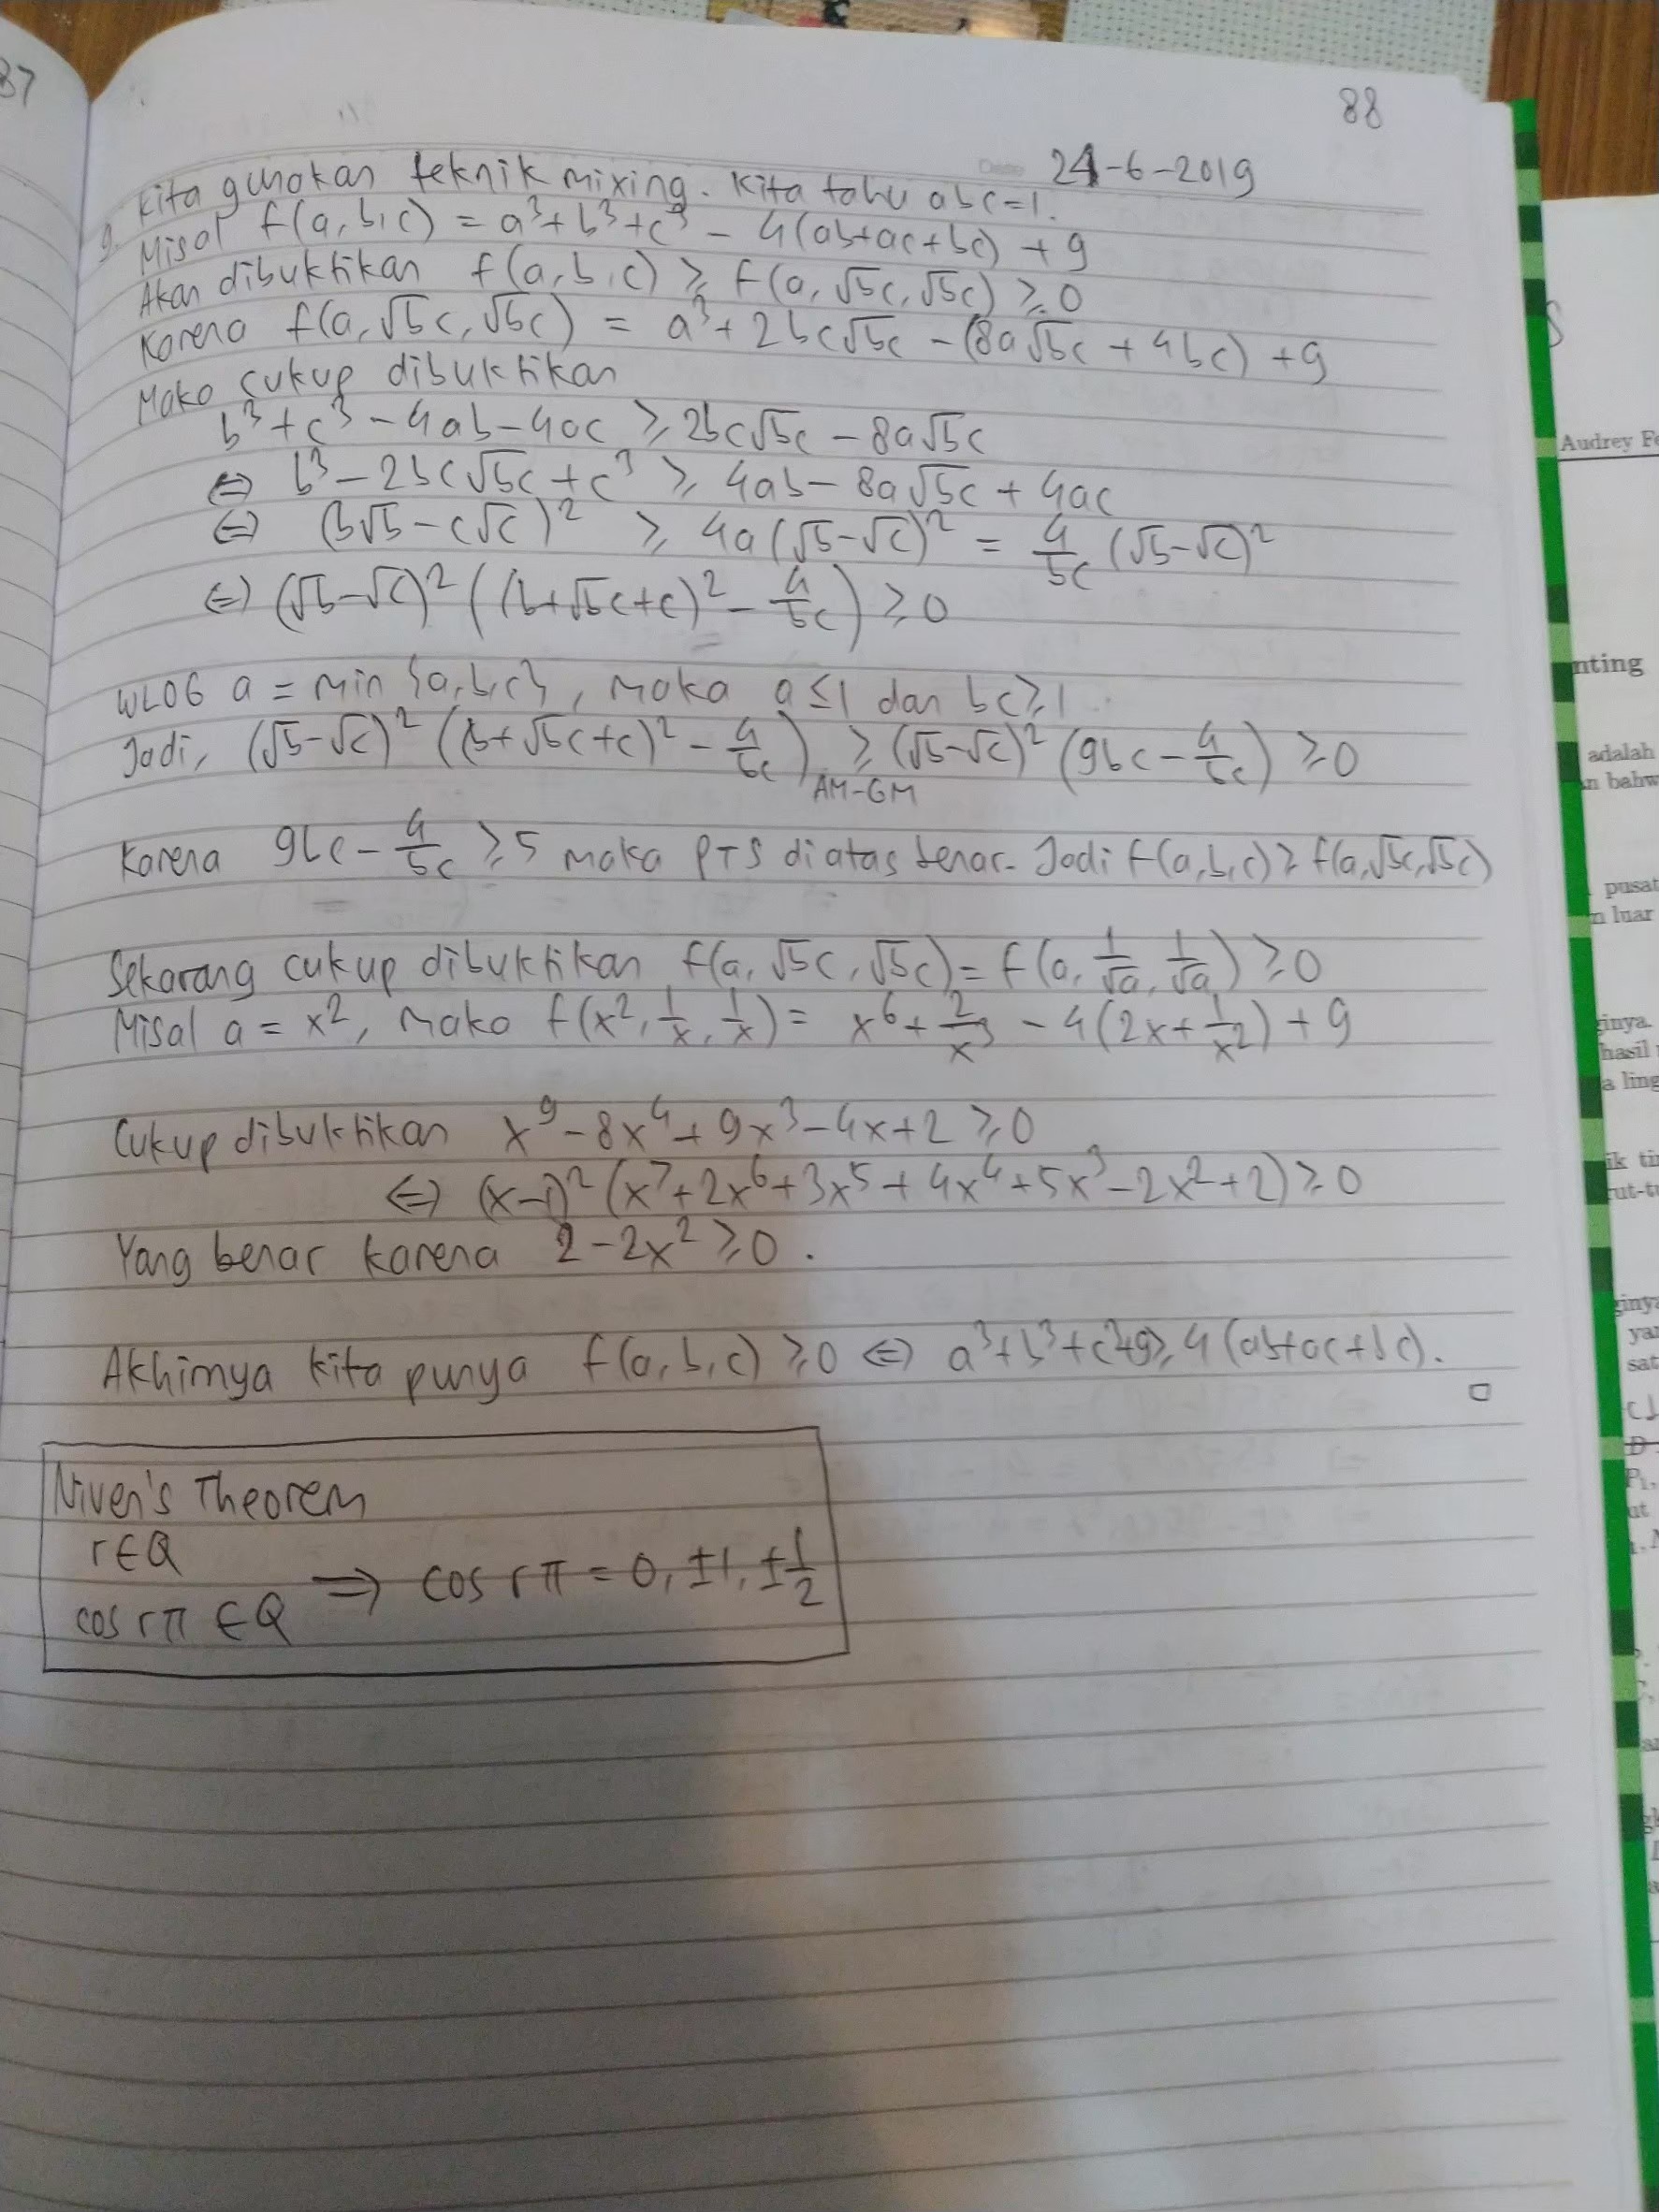 37
88
24-6-2019
9. Kita gunakan teknik mixing. Kita tahu abc=1.
Misal f(a,b,c) = a³+b³+c³ - 4(ab+ac+bc) + 9
Akan dibuktikan f(a,b,c) ≥ f(a,√bc,√bc) ≥ 0
Karena f(a,√bc,√bc) = a³+2bc√bc - (8a√bc + 4bc) + 9
Maka cukup dibuktikan
b³+c³-4ab-4ac ≥ 2bc√bc - 8a√bc
⇔ b³-2bc√bc+c³ ≥ 4ab-8a√bc+4ac
⇔ (b√b-c√c)² ≥ 4a(√b-√c)² = 4/bc (√b-√c)²
⇔ (√b-√c)² ((b+√bc+c)² - 4/bc) ≥ 0
WLOG a = min {a,b,c}, maka a≤1 dan bc≥1.
Jadi, (√b-√c)² ((b+√bc+c)² - 4/bc) ≥ (√b-√c)² (9bc - 4/bc) ≥ 0
AM-GM
Karena 9bc - 4/bc ≥ 5 maka PTS diatas benar. Jadi f(a,b,c) ≥ f(a,√bc,√bc)
Sekarang cukup dibuktikan f(a,√bc,√bc) = f(a, 1/√a, 1/√a) ≥ 0
Misal a = x², maka f(x², 1/x, 1/x) = x⁶ + 2/x³ - 4(2x + 1/x²) + 9
Cukup dibuktikan x⁹-8x⁴+9x³-4x+2 ≥ 0
⇔ (x-1)² (x⁷+2x⁶+3x⁵+4x⁴+5x³-2x²+2) ≥ 0
Yang benar karena 2-2x² ≥ 0.
Akhirnya kita punya f(a,b,c) ≥ 0 ⇔ a³+b³+c³+9 ≥ 4(ab+ac+bc).
□
Niven's Theorem
r∈Q
cos rπ ∈ Q ⇒ cos rπ = 0, ±1, ±1/2
Audrey
nting
adalah
bahw
pusat
luar
ginya.
hasil